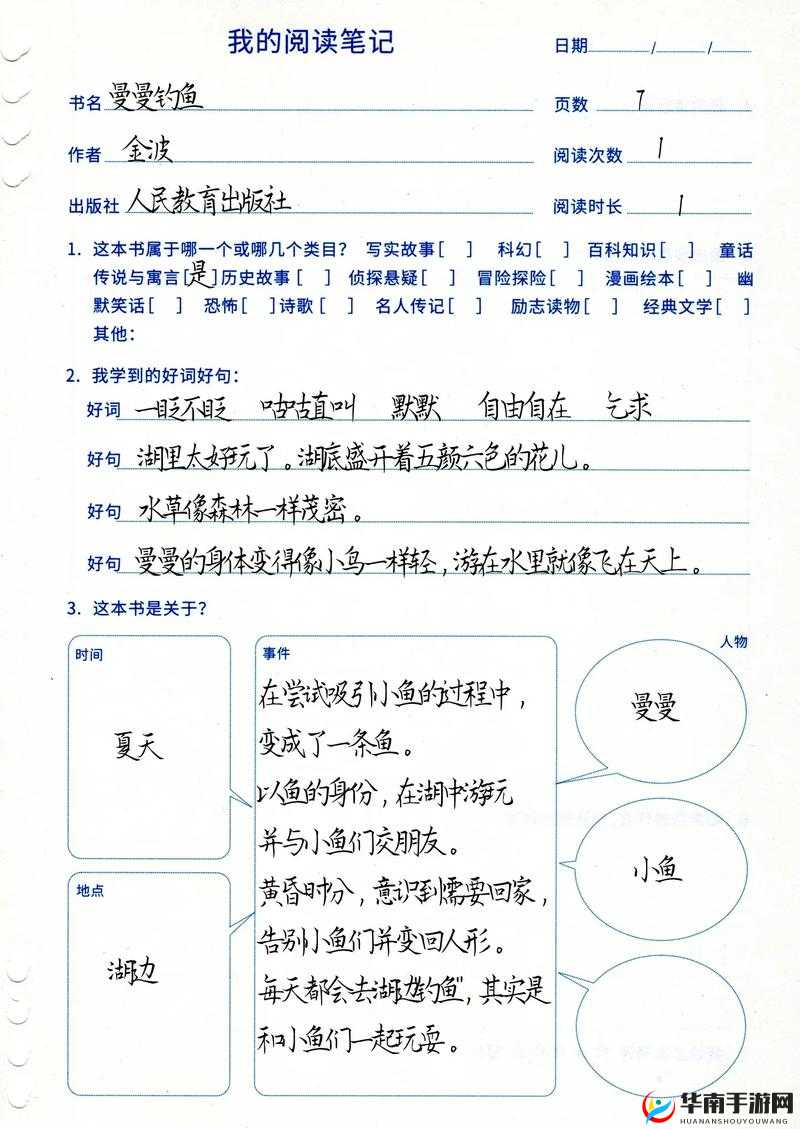 我的阅读笔记
日期 / /
书名 曼曼钓鱼
页数 7
作者 金波
阅读次数 1
出版社 人民教育出版社
阅读时长 1
1. 这本书属于哪一个或哪几个类目? 写实故事[ ] 科幻[ ] 百科知识[ ] 童话
传说与寓言[是]历史故事[ ] 侦探悬疑[ ] 冒险探险[ ] 漫画绘本[ ] 幽
默笑话[ ] 恐怖[ ]诗歌[ ] 名人传记[ ] 励志读物[ ] 经典文学[ ]
其他:
2. 我学到的好词好句:
好词 一眨不眨 咕咕直叫 默默 自由自在 乞求
好句 湖里太好玩了。湖底盛开着五颜六色的花儿。
好句 水草像森林一样茂密。
好句 曼曼的身体变得像小鸟一样轻，游在水里就像飞在天上。
3. 这本书是关于?
时间
夏天
地点
湖边
事件
在尝试吸引小鱼的过程中，
变成了一条鱼。
以鱼的身份，在湖中游玩
并与小鱼们交朋友。
黄昏时分，意识到需要回家，
告别小鱼们并变回人形。
每天都会去湖边"钓鱼"，其实是
和小鱼们一起玩耍。
人物
曼曼
小鱼
华南手游网
HUANANSHOUYOUWANG